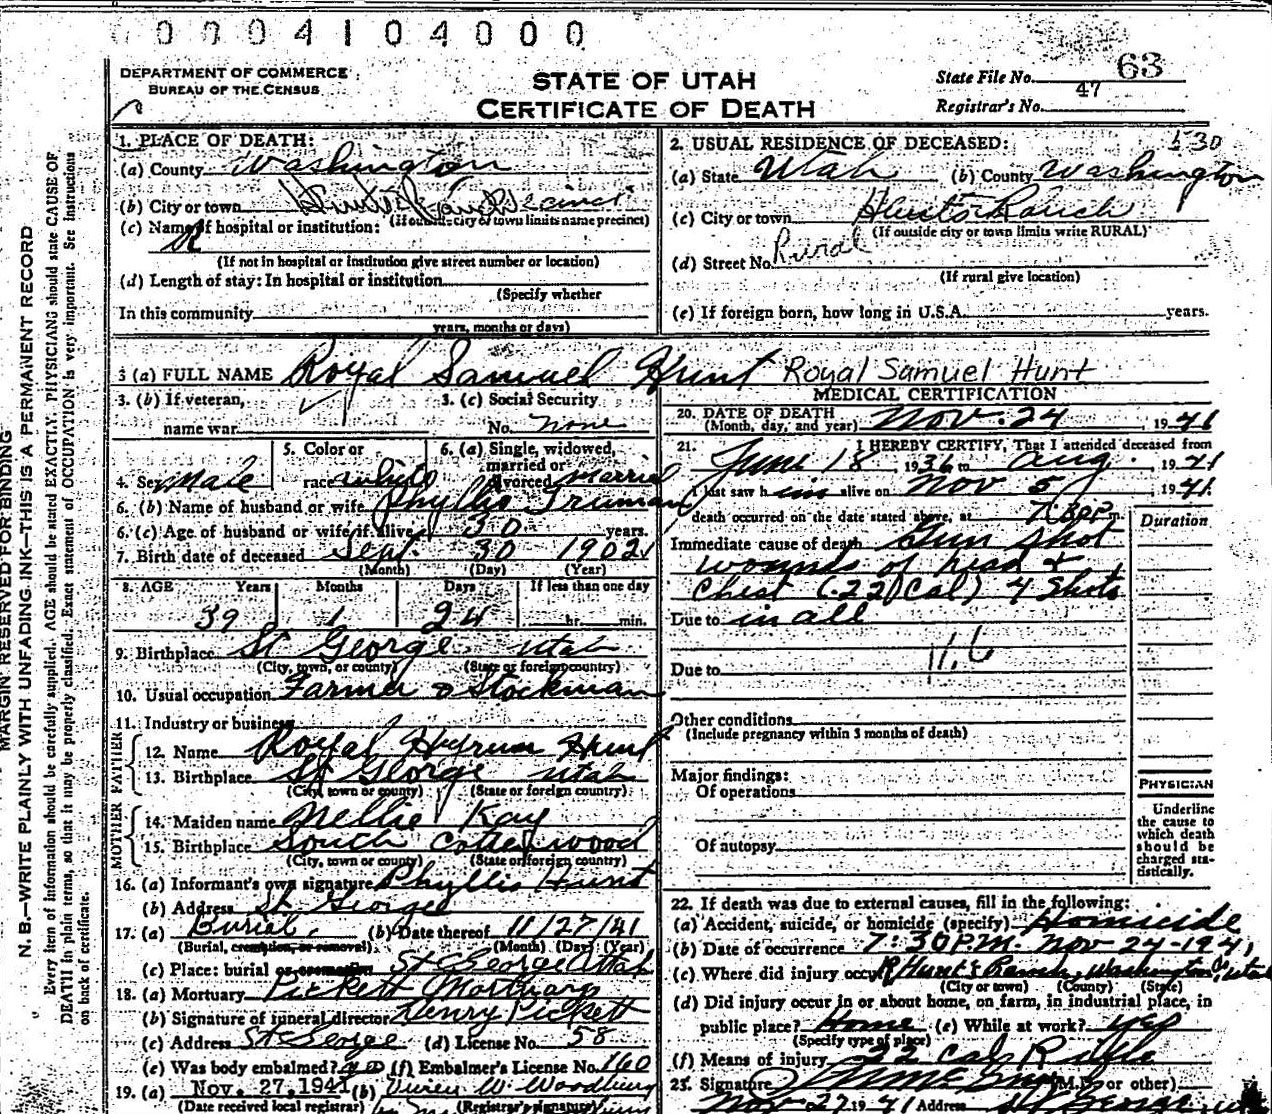 0004104000
DEPARTMENT OF COMMERCE
BUREAU OF THE CENSUS
STATE OF UTAH
CERTIFICATE OF DEATH
State File No. 63
47
Registrar's No.
MARGIN RESERVED FOR BINDING
N. B.—WRITE PLAINLY WITH UNFADING INK—THIS IS A PERMANENT RECORD
Every item of information should be carefully supplied. AGE should be stated EXACTLY. PHYSICIANS should state CAUSE OF
DEATH in plain terms, so that it may be properly classified. Exact statement of OCCUPATION is very important. See Instructions
on back of certificate.
1. PLACE OF DEATH:
(a) County Washington
(b) City or town Hunt's Ranch Precinct
(If outside city or town limits name precinct)
(c) Name if hospital or institution:
(If not in hospital or institution give street number or location)
(d) Length of stay: In hospital or institution
(Specify whether
In this community
years, months or days)
2. USUAL RESIDENCE OF DECEASED: 530
(a) State Utah (b) County Washington
(c) City or town Hunts Ranch
(If outside city or town limits write RURAL)
(d) Street No. Rural
(If rural give location)
(e) If foreign born, how long in U.S.A. years.
3 (a) FULL NAME Royal Samuel Hunt Royal Samuel Hunt
3. (b) If veteran, 3. (c) Social Security
name war No. None
4. Sex Male 5. Color or race white 6. (a) Single, widowed, married or divorced Married
6. (b) Name of husband or wife Phyllis Truman
6. (c) Age of husband or wife if alive 30 years.
7. Birth date of deceased Sept. 30 1902
(Month) (Day) (Year)
8. AGE Years Months Days If less than one day
39 1 24 hr. min.
9. Birthplace St George Utah
(City, town, or county) (State or foreign country)
10. Usual occupation Farmer & Stockman
11. Industry or business
FATHER
12. Name Royal Hyrum Hunt
13. Birthplace St George Utah
(City, town or county) (State or foreign country)
MOTHER
14. Maiden name Nellie Kay
15. Birthplace South Cottonwood
(City, town or county) (State or foreign country)
16. (a) Informant's own signature Phyllis Hunt
(b) Address St George
17. (a) Burial (b) Date thereof 11/27/41
(Burial, cremation, or removal) (Month) (Day) (Year)
(c) Place: burial or cremation St George Utah
18. (a) Mortuary Pickett Mortuary
(b) Signature of funeral director Henry Pickett
(c) Address St George (d) License No. 58
(e) Was body embalmed? yes (f) Embalmer's License No. 160
19. (a) Nov. 27, 1941 (b) Vivien W. Woodbury
(Date received local registrar) (Registrar's signature)
MEDICAL CERTIFICATION
20. DATE OF DEATH
(Month, day, and year) Nov. 24, 1941
21. I HEREBY CERTIFY, That I attended deceased from
June 18 1936 to Aug. , 1941
I last saw him alive on Nov 5, 1941
death occurred on the date stated above, at 7:30P m.
Duration
Immediate cause of death Gun shot
wounds of head &
Chest (.22 Cal) 4 Shots
Due to in all
116
Due to
Other conditions
(Include pregnancy within 3 months of death)
Major findings:
Of operations
Of autopsy
PHYSICIAN
Underline
the cause to
which death
should be
charged sta-
tistically.
22. If death was due to external causes, fill in the following:
(a) Accident, suicide, or homicide (specify) Homicide
(b) Date of occurrence 7:30 P.M. Nov 24-1941
(c) Where did injury occur? Hunt's Ranch, Washington Co, Utah
(City or town) (County) (State)
(d) Did injury occur in or about home, on farm, in industrial place, in
public place? Home (e) While at work? yes
(Specify type of place)
(f) Means of injury 22 Cal Rifle
23. Signature (M.D. or other)
Nov 27 1941 Address St George